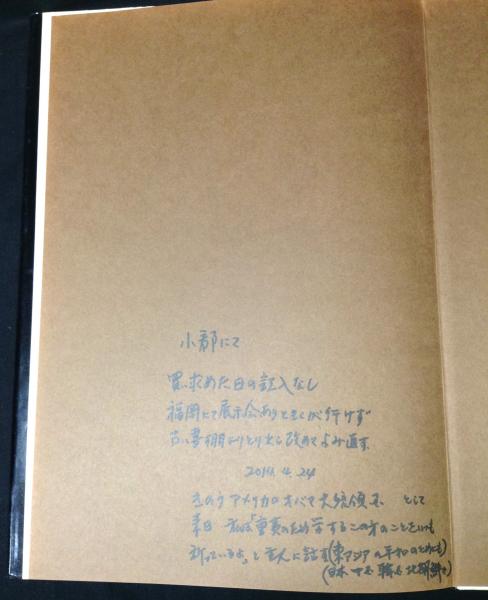 小郡にて
買い求めた日の記入なし
福岡にて展示会ありときくが行けず
古い書棚よりとり出し改めてよみ直す
2014.4.24
きのうアメリカのオバマ大統領 として
来日 する この方のことをいつも
祈っているよ」と主人に話す(東アジアの平和のためにも)
(日本 中国 韓国 北朝鮮